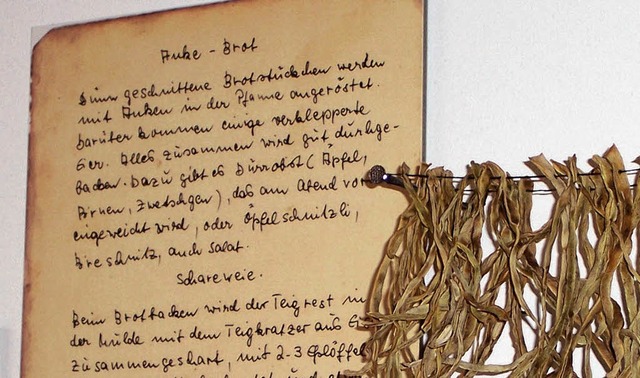 Anke - Brot
Dünn geschnittene Brotstückchen werden
mit Anken in der Pfanne angeröstet.
Darüter kommen einige verklepperte
Eier. Alles zusammen wird gut durchge-
backen. Dazu gibt es Dürrobst (Äpfel,
Birnen, Zwetschgen), das am Abend vor
eingeweicht wird, oder Öpfelschnitzli,
Bireschnitz, auch Salat.
Schareweie.
Beim Brotbacken wird der Teigrest in
der Mulde mit dem Teigkratzer aus
zusammengeshart, mit 2-3 Eßlöffel